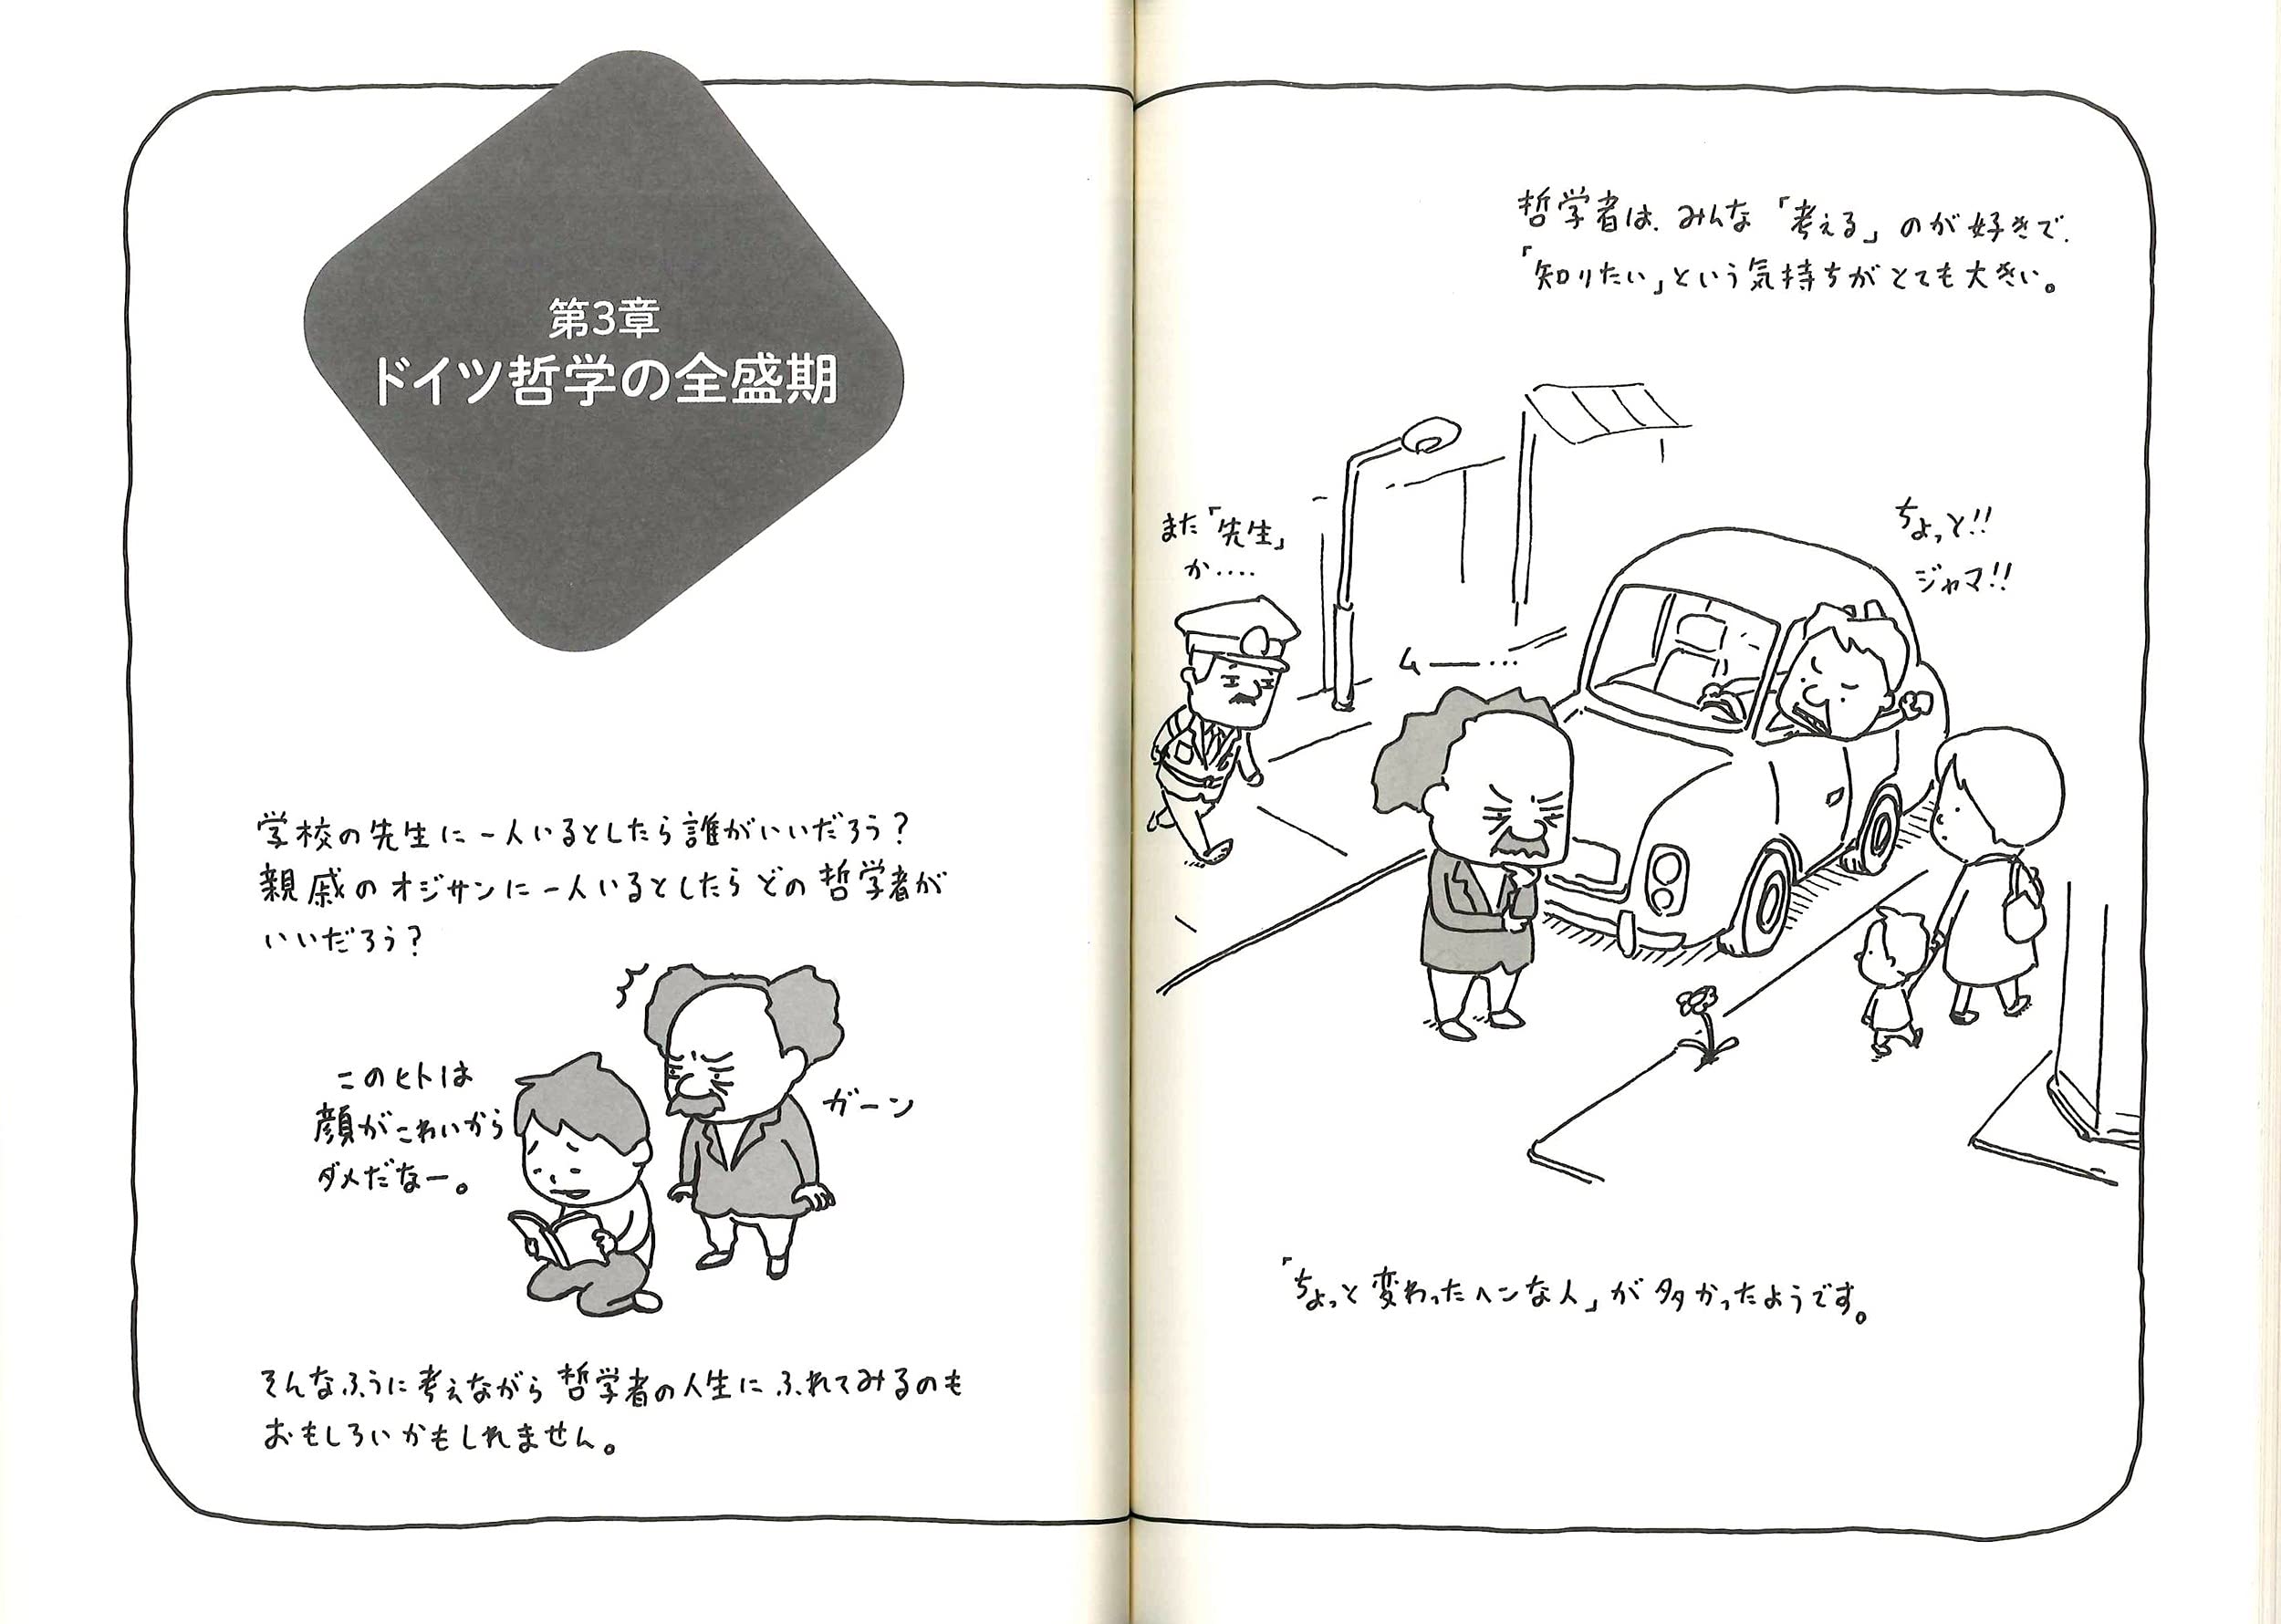 第3章
ドイツ哲学の全盛期
学校の先生に一人いるとしたら誰がいいだろう？
親戚のオジサンに一人いるとしたらどの哲学者が
いいだろう？
このヒトは
顔がこわいから
ダメだなー。
ガーン
そんなふうに考えながら哲学者の人生にふれてみるのも
おもしろいかもしれません。
哲学者は、みんな「考える」のが好きで、
「知りたい」という気持ちがとても大きい。
また「先生」
か‥‥
ムー…
ちょっと!!
ジャマ!!
「ちょっと変わったヘンな人」が多かったようです。